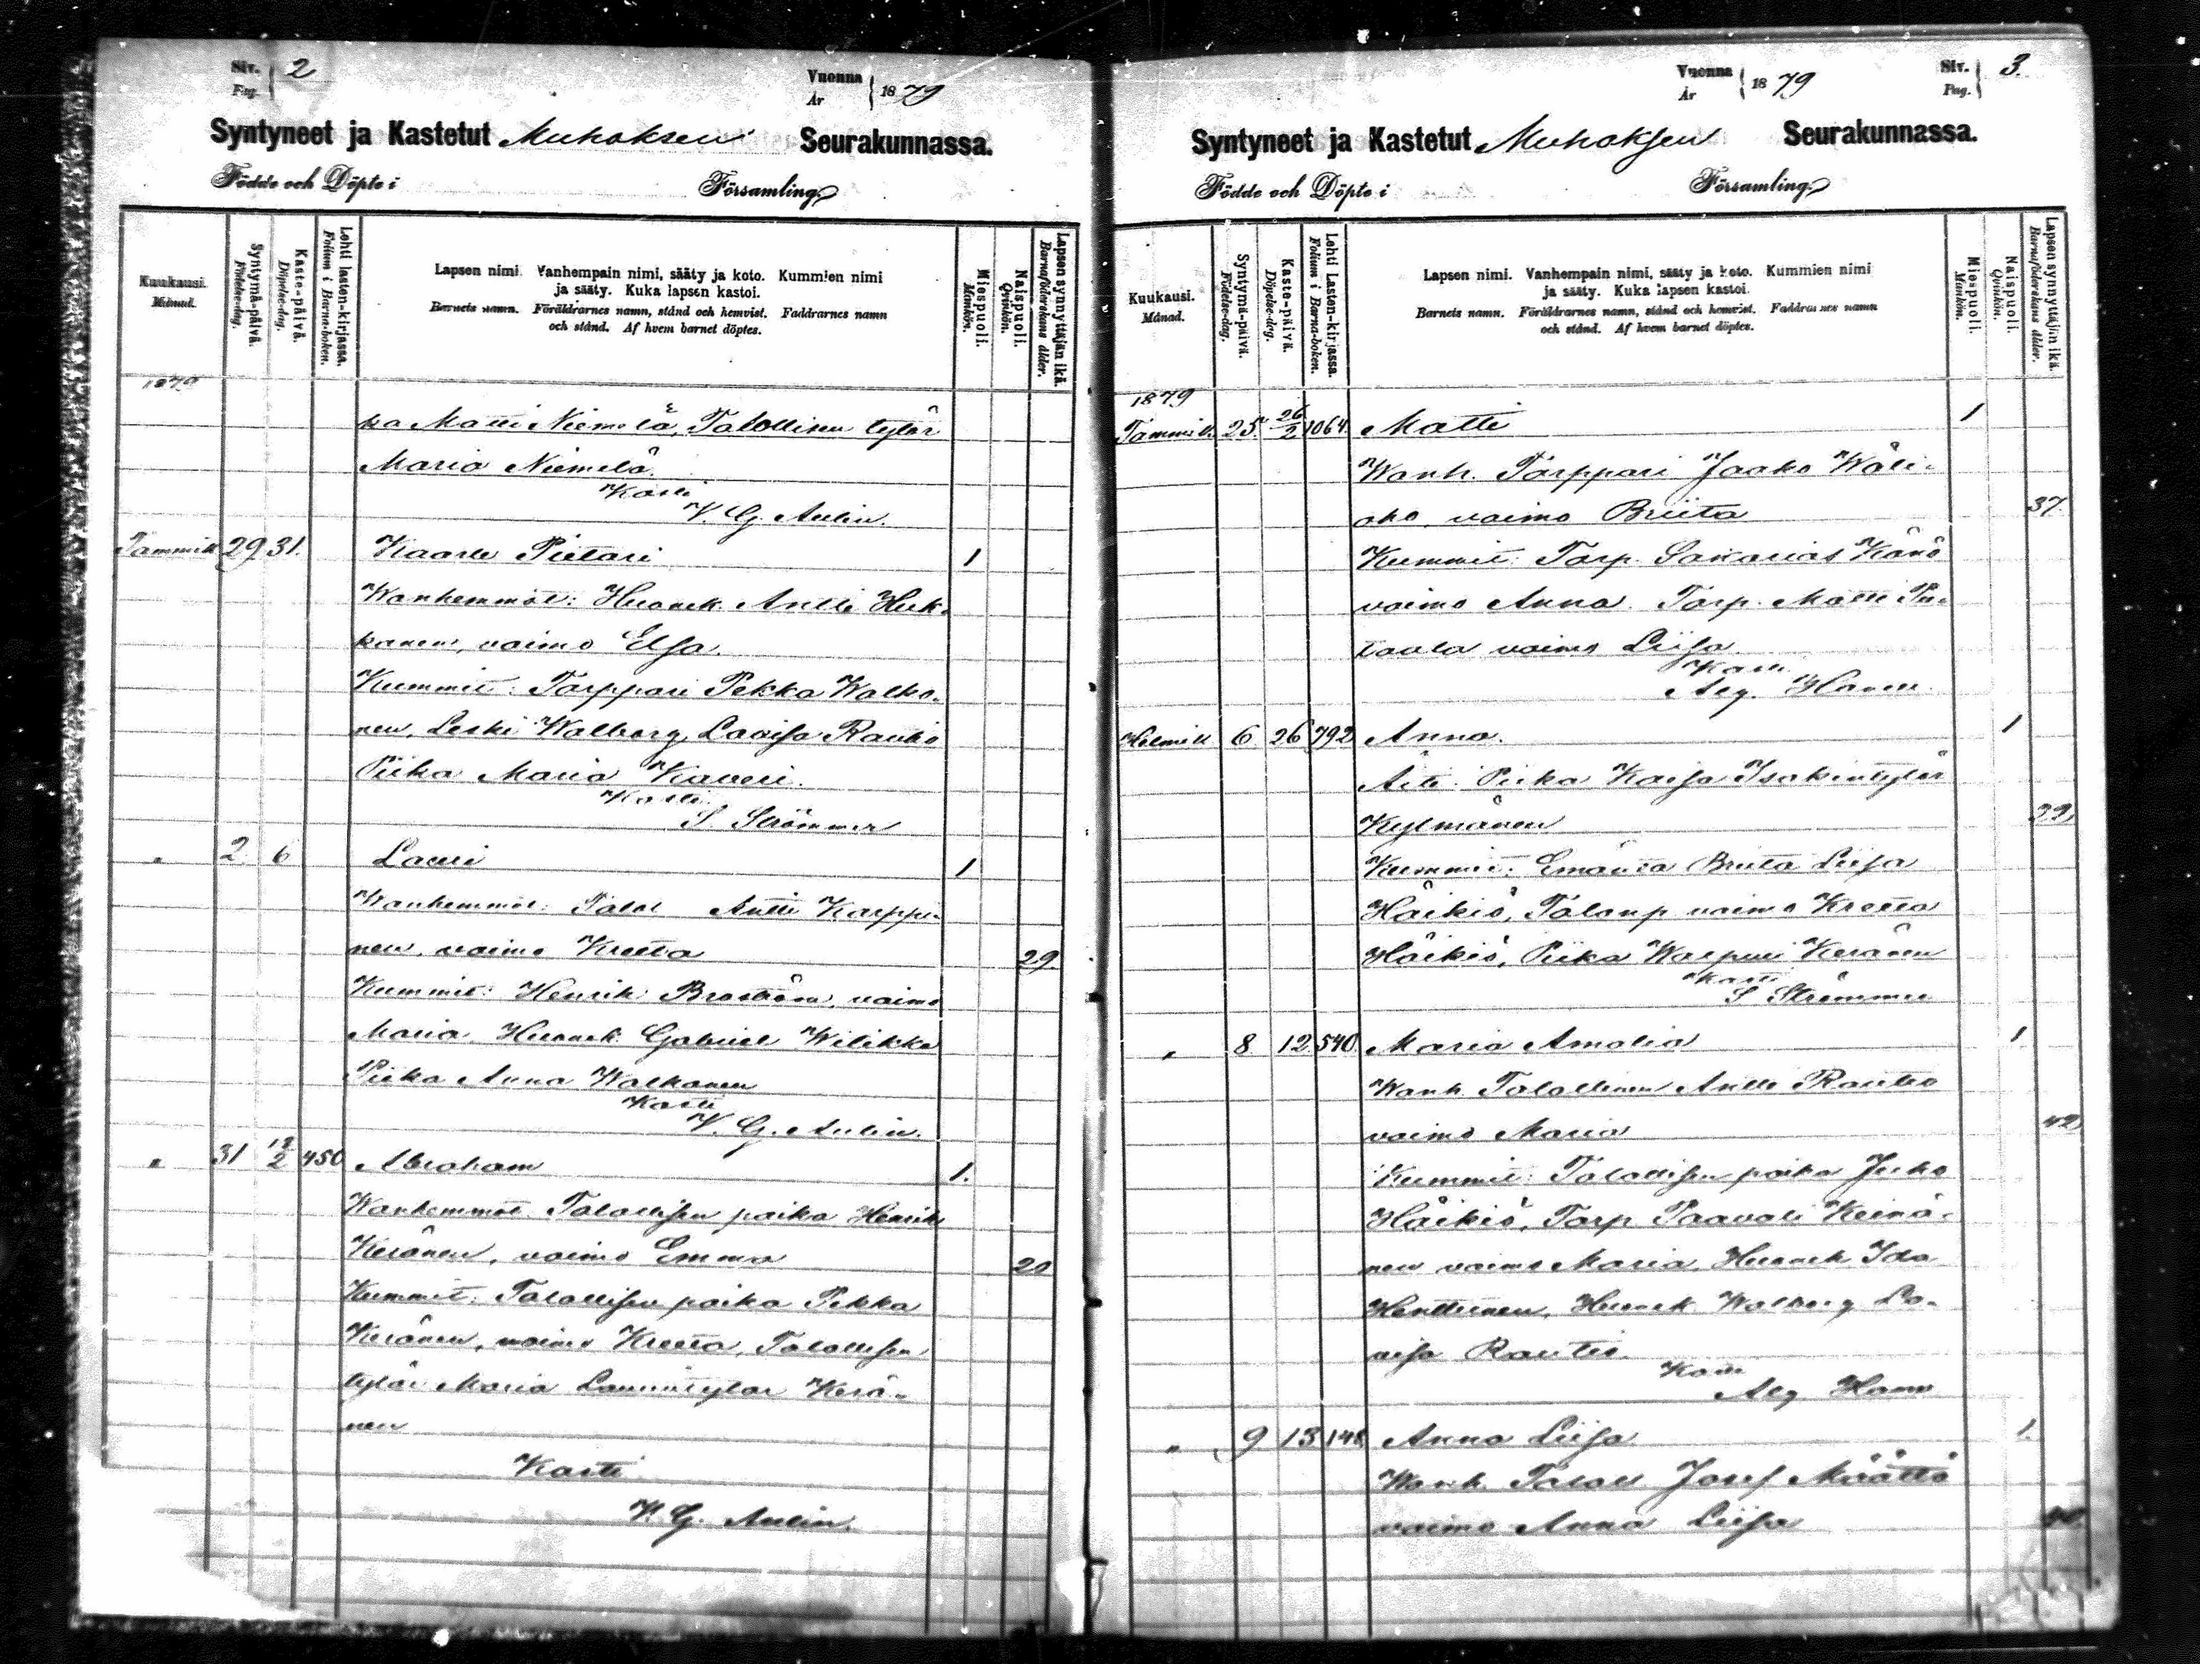 Siv. 2
Pag.
Vuonna 1879
År
Syntyneet ja Kastetut Muhoksen Seurakunnassa.
Födde och Döpte i Församling.
Kuukausi. Månad.
Syntymä-päivä. Födelse-dag.
Kaste-päivä. Döpelse-dag.
Lehti lasten-kirjassa. Folium i Barna-boken.
Lapsen nimi. Vanhempain nimi, sääty ja koto. Kummien nimi
ja sääty. Kuka lapsen kastoi.
Barnets namn. Föräldrarnes namn, stånd och hemvist. Faddrarnes namn
och stånd. Af hvem barnet döptes.
Miespuoli. Mankön.
Naispuoli. Qvinkön.
Lapsen synnyttäjän ikä. Barnaföderskans ålder.
1879
ka Matti Niemelä, Talollisen tytär
Maria Niemelä.
Kasti
V. G. Aulin.
Tammik 29 31. Kaarle Pietari 1
Wanhemmat: Huonek. Antti Huk-
kanen, vaimo Elsa.
Kummit: Torppari Pekka Walko-
nen, Leski Walborg Lovisa Rautio
Piika Maria Kaveri.
Kasti
S Strömmer
" 2. 6 Lauri 1
Wanhemmat: Talol Antti Karppi-
nen, vaimo Kreeta 29.
Kummit: Henrik Broström, vaimo
Maria. Huonek Gabriel Wilikka
Piika Anna Walkonen
Kasti
V. G. Aulin.
" 31 12/2 450 Abraham 1.
Wanhemmat Talollisen poika Henrik
Keränen, vaimo Emma 20
Kummit: Talollisen poika Pekka
Keränen, vaimo Kreeta, Talollisen
tytär Maria Laurintytär Kerä-
nen
Kasti
V. G. Aulin.
Vuonna 1879
År
Siv. 3.
Pag.
Syntyneet ja Kastetut Muhoksen Seurakunnassa.
Födde och Döpte i Församling.
Kuukausi. Månad.
Syntymä-päivä. Födelse-dag.
Kaste-päivä. Döpelse-dag.
Lehti Lasten-kirjassa. Folium i Barna-boken.
Lapsen nimi. Vanhempain nimi, sääty ja koto. Kummien nimi
ja sääty. Kuka lapsen kastoi.
Barnets namn. Föräldrarnes namn, stånd och hemvist. Faddrarnes namn
och stånd. Af hvem barnet döptes.
Miespuoli. Mankön.
Naispuoli. Qvinkön.
Lapsen synnyttäjän ikä. Barnaföderskans ålder.
1879
Tammik 25. 26/2 1064. Matti 1
Wanh. Torppari Jaako Wäli-
aho, vaimo Briita 37.
Kummit: Torp. Sakarias Känö
vaimo Anna. Torp. Matti Pu-
taala vaimo Liisa
Kasti
Helmik 6 26 792 Anna. 1
Äiti: Piika Kaisa Isakintytär
Kylmänen 22
Kummit: Emäntä Briita Liisa
Häikiö, Talonp vaimo Kreeta
Häikiö, Piika Warpuri Keränen
Kasti
S Strömmer
" 8 12. 540. Maria Amalia 1
Wanh. Talollinen Antti Rautio
vaimo Maria 42
Kummit: Talollisen poika Juho
Häikiö, Torp Paavali Keinä-
nen vaimo Maria, Huonek Ida
Huonek Walborg Lo-
visa Rautio.
Kasti
" 9 13 148 Anna Liisa 1.
Wanh. Taloll Josef Määttä
vaimo Anna Liisa